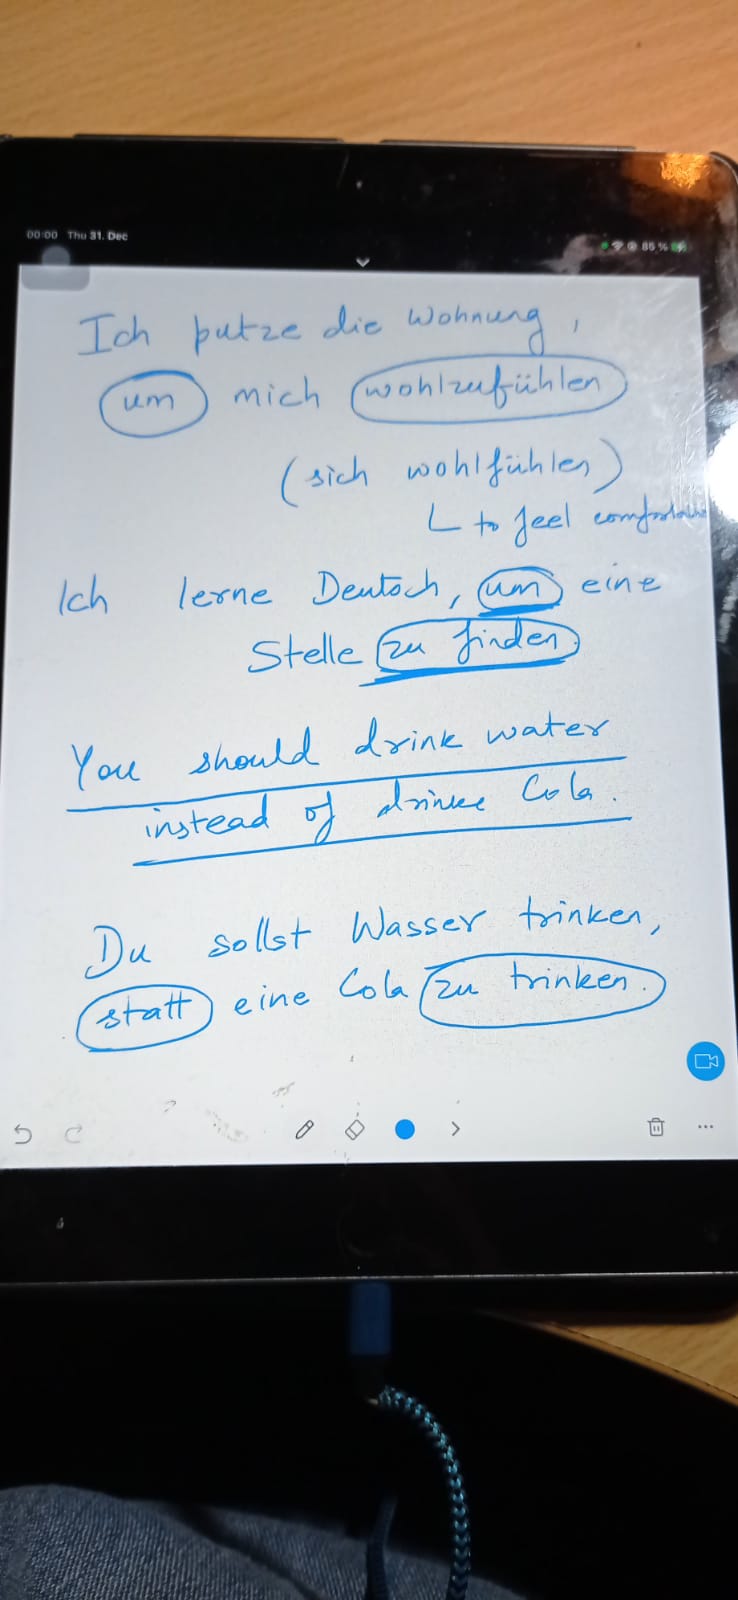 00:00 Thu 31. Dec
85 %
Ich putze die Wohnung,
um mich wohlzufühlen
(sich wohlfühlen)
to feel comfortable
Ich lerne Deutsch, um eine
Stelle zu finden
You should drink water
instead of drinke Cola.
Du sollst Wasser trinken,
statt eine Cola zu trinken.